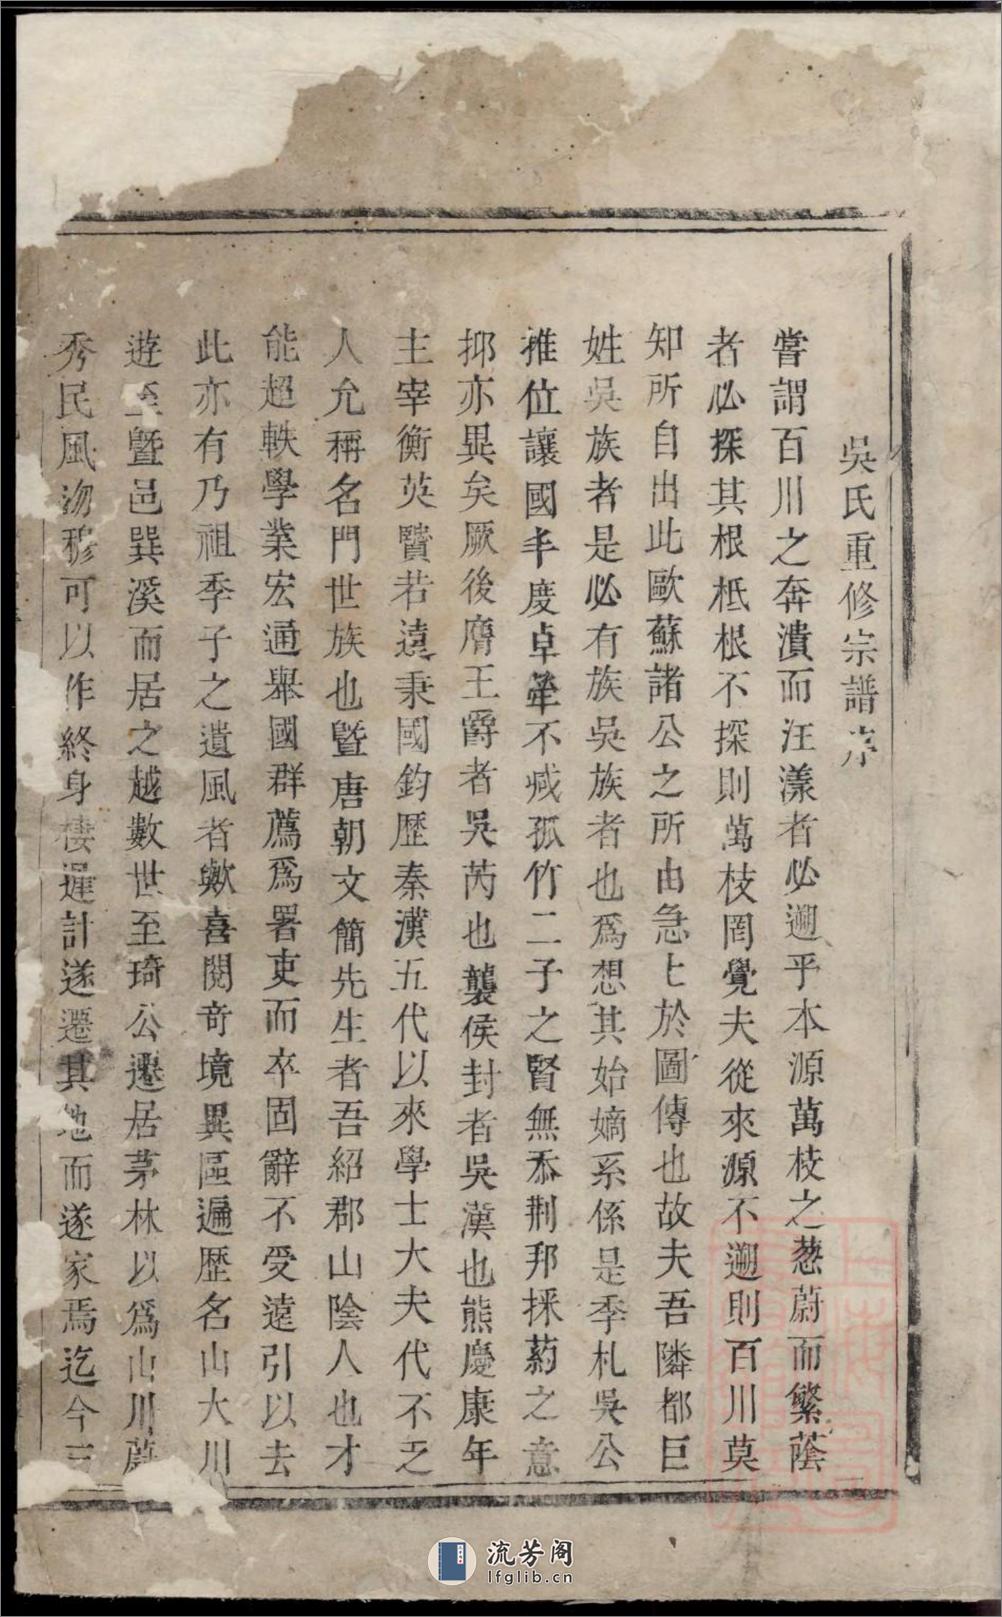 吳氏重修宗譜序
嘗謂百川之奔潰而汪漾者必遡乎本源萬枝之葱蔚而繁蔭
者必探其根柢根不探則萬枝罔覺夫從來源不遡則百川莫
知所自出此歐蘇諸公之所由急七於圖傳也故夫吾隣都巨
姓吳族者是必有族吳族者也爲想其始嫡系係是季札吳公
推位讓國丰度卓犖不減孤竹二子之賢無忝荆邦採葯之意
抑亦異矣厥後膺王爵者吳芮也襲侯封者吳漢也熊慶康年
主宰衡英賢若遠秉國鈞歷秦漢五代以來學士大夫代不乏
人允稱名門世族也曁唐朝文簡先生者吾紹郡山陰人也才
能超軼學業宏通舉國群薦爲署吏而卒固辭不受遠引以去
此亦有乃祖季子之遺風者歟喜閱奇境異區遍歷名山大川
遊至曁邑巽溪而居之越數世至琦公遷居茅林以爲山川蔚
秀民風沕穆可以作終身棲遲計遂遷其地而遂家焉迄今三
流芳阁
lfglib.cn